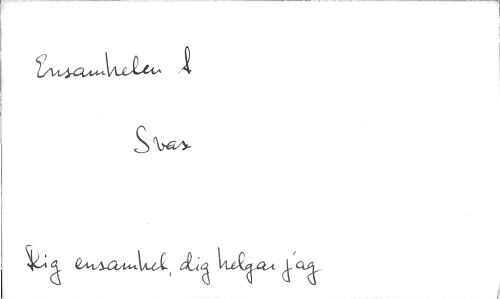 Ensamheten &
Svar
Rig ensamhet, dig helgar jag